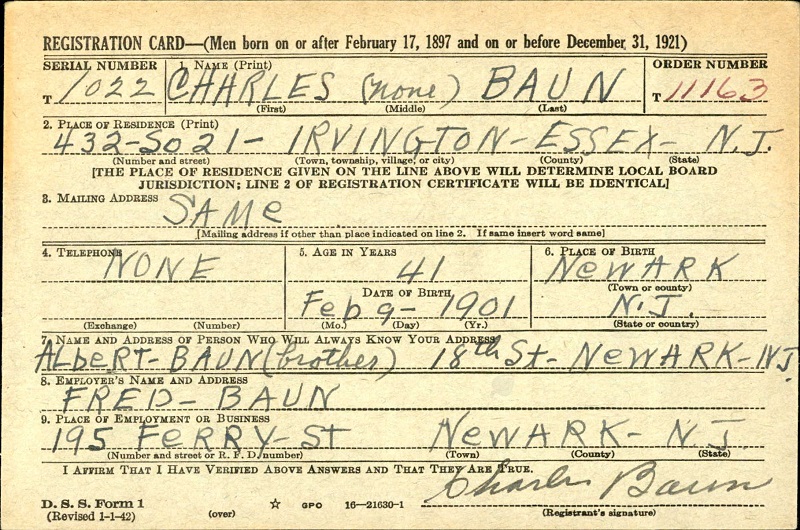 REGISTRATION CARD—(Men born on or after February 17, 1897 and on or before December 31, 1921)
SERIAL NUMBER 1. NAME (Print) ORDER NUMBER
T 1022 CHARLES (none) BAUN T 11163
(First) (Middle) (Last)
2. PLACE OF RESIDENCE (Print)
432-So 21- IRVINGTON-ESSEX- N.J.
(Number and street) (Town, township, village, or city) (County) (State)
[THE PLACE OF RESIDENCE GIVEN ON THE LINE ABOVE WILL DETERMINE LOCAL BOARD
JURISDICTION; LINE 2 OF REGISTRATION CERTIFICATE WILL BE IDENTICAL]
3. MAILING ADDRESS
SAMe
[Mailing address if other than place indicated on line 2. If same insert word same]
4. TELEPHONE 5. AGE IN YEARS 6. PLACE OF BIRTH
NONE 41 NewARK
DATE OF BIRTH (Town or county)
Feb 9- 1901 N.J.
(Exchange) (Number) (Mo.) (Day) (Yr.) (State or country)
7. NAME AND ADDRESS OF PERSON WHO WILL ALWAYS KNOW YOUR ADDRESS
ALbeRT- BAUN (brother) 18th St- NewARK-NJ.
8. EMPLOYER'S NAME AND ADDRESS
FRED- BAUN
9. PLACE OF EMPLOYMENT OR BUSINESS
195 FeRRY-ST NewARK- N.J.
(Number and street or R. F. D. number) (Town) (County) (State)
I AFFIRM THAT I HAVE VERIFIED ABOVE ANSWERS AND THAT THEY ARE TRUE.
Charles Baun
D. S. S. Form 1
(Revised 1-1-42) (over) ☆ GPO 16—21630-1 (Registrant's signature)